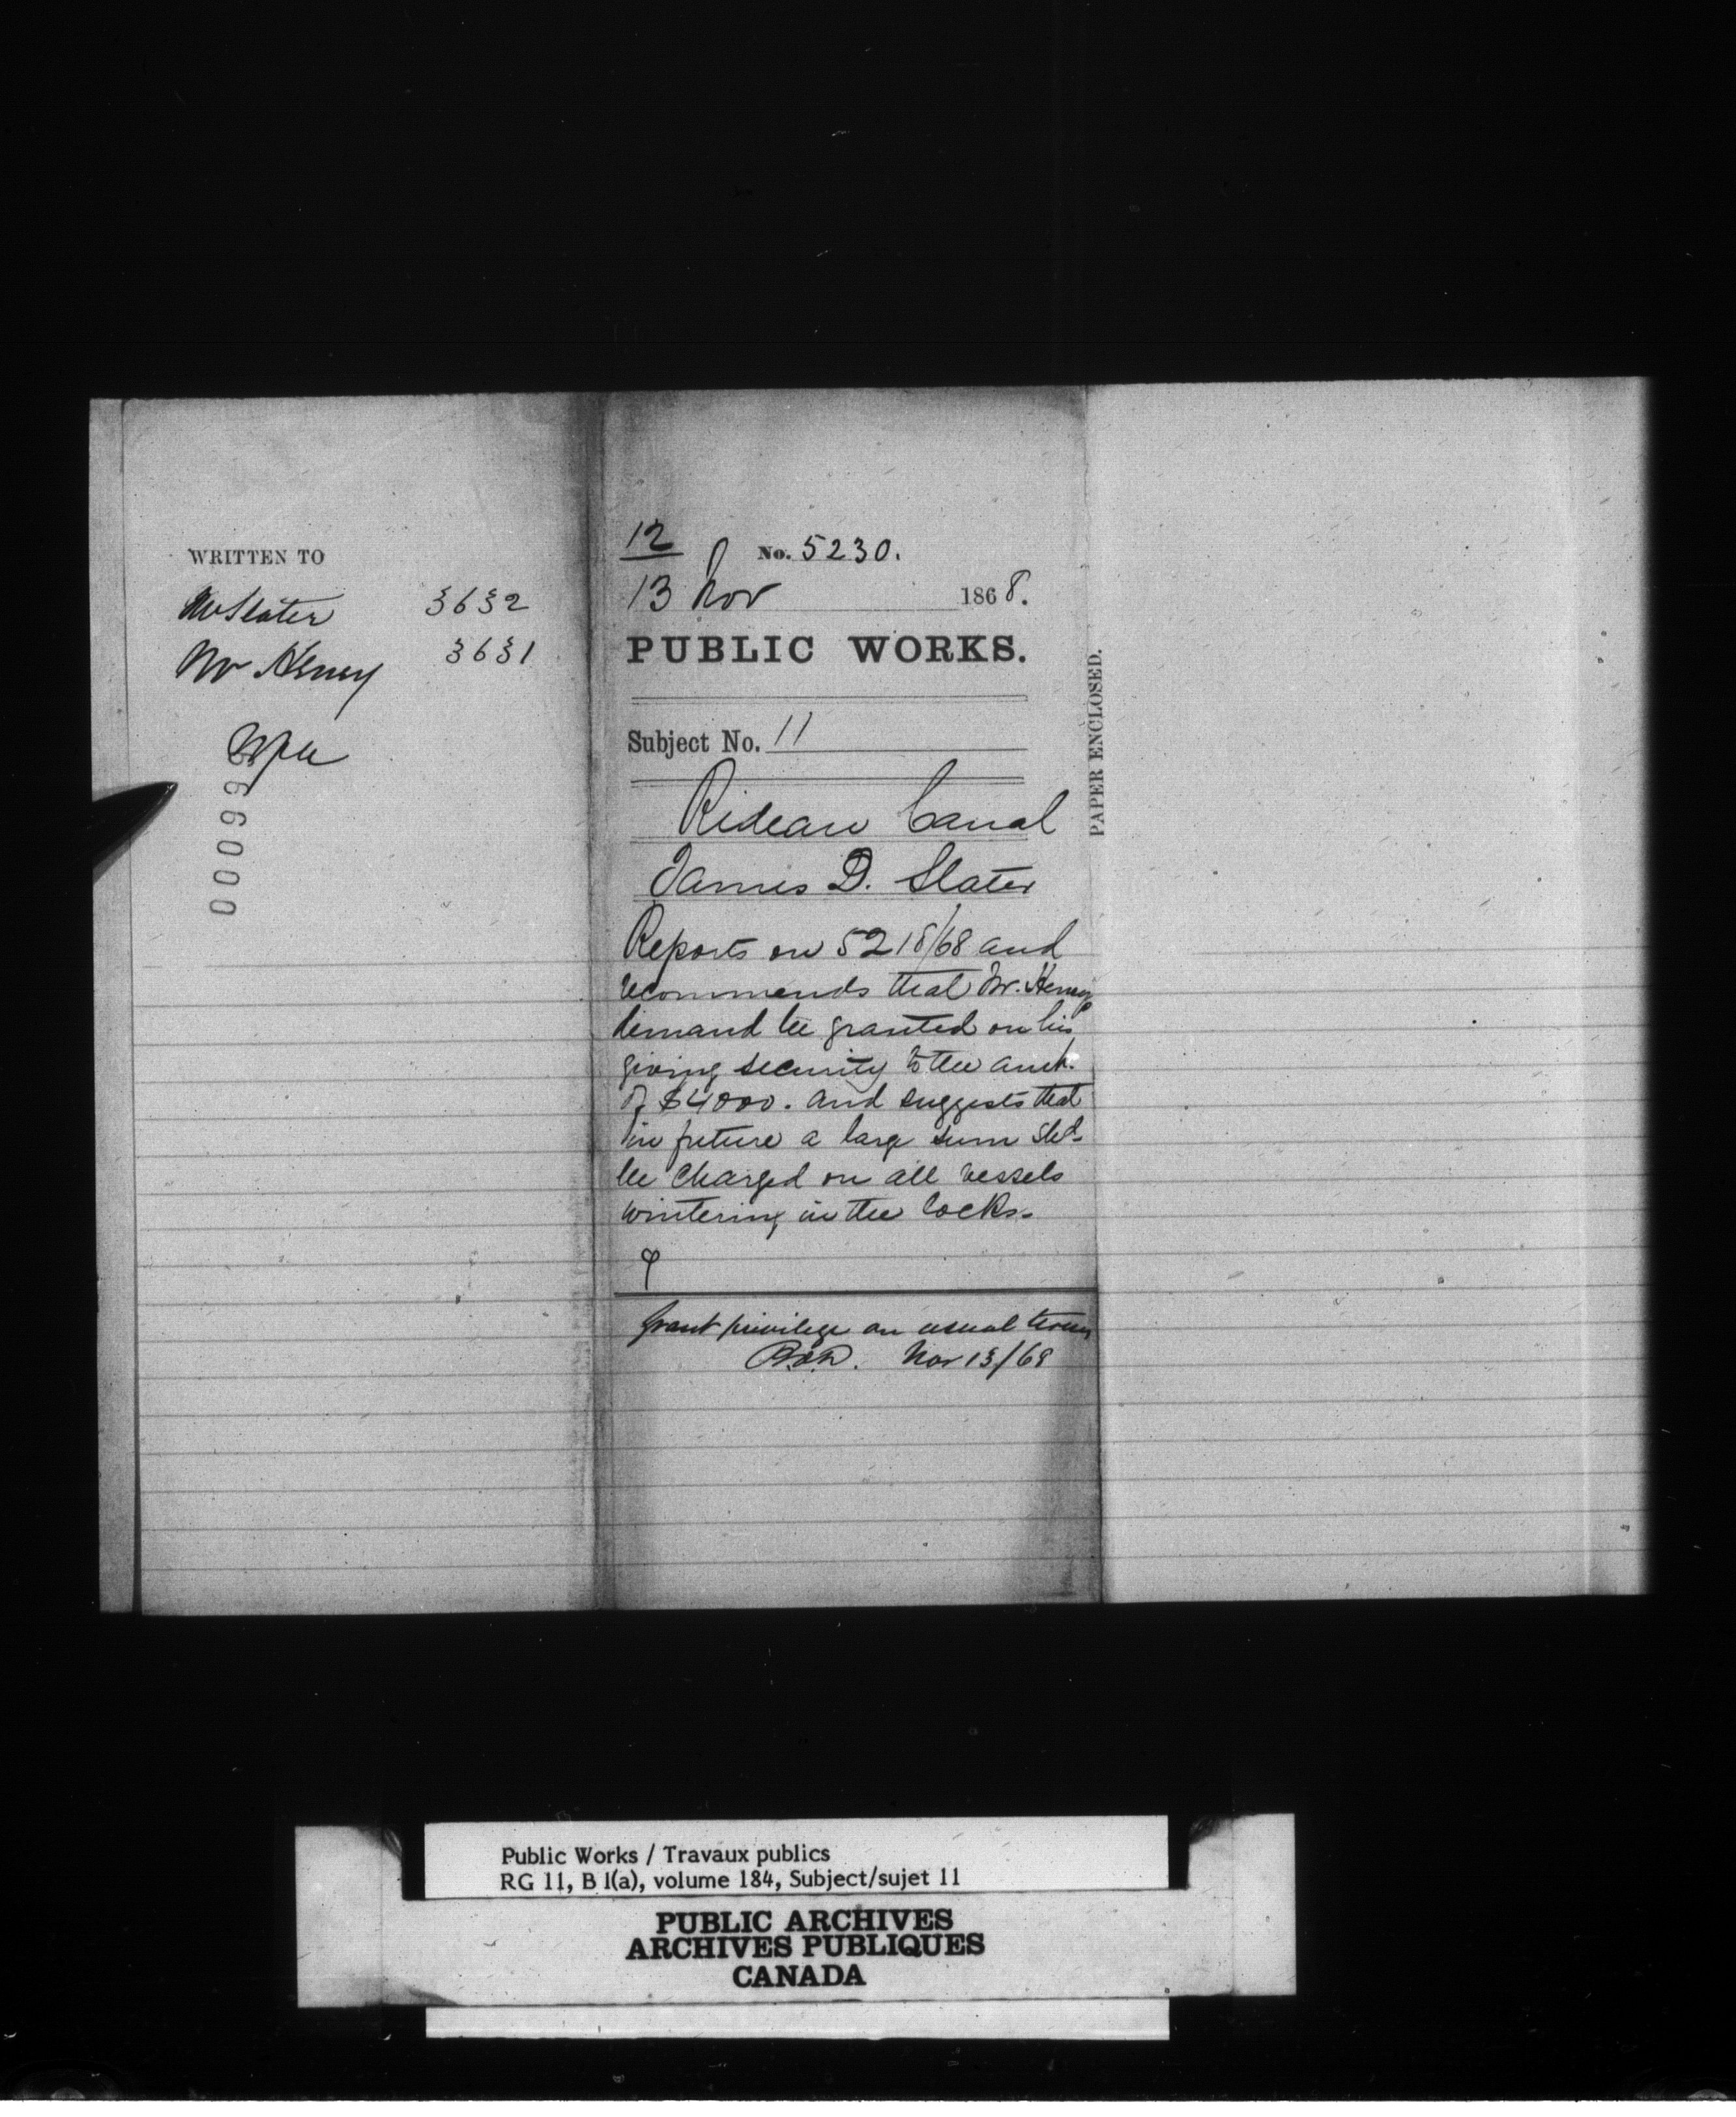 WRITTEN TO
Mr Slater 3632
Mr Heney 3631
000099
12
No. 5230.
13 Nov 1868.
PUBLIC WORKS.
Subject No. 11
Rideau Canal
James D. Slater
Reports on 5218/68 and
recommends that Mr. Heney
demand be granted on his
giving security to the amt.
of $4000. and suggests that
in future a large sum shd.
be charged on all vessels
wintering in the locks.
Grant privilege on usual terms
Nov 13/68
PAPER ENCLOSED.
Public Works / Travaux publics
RG 11, B 1(a), volume 184, Subject/sujet 11
PUBLIC ARCHIVES
ARCHIVES PUBLIQUES
CANADA